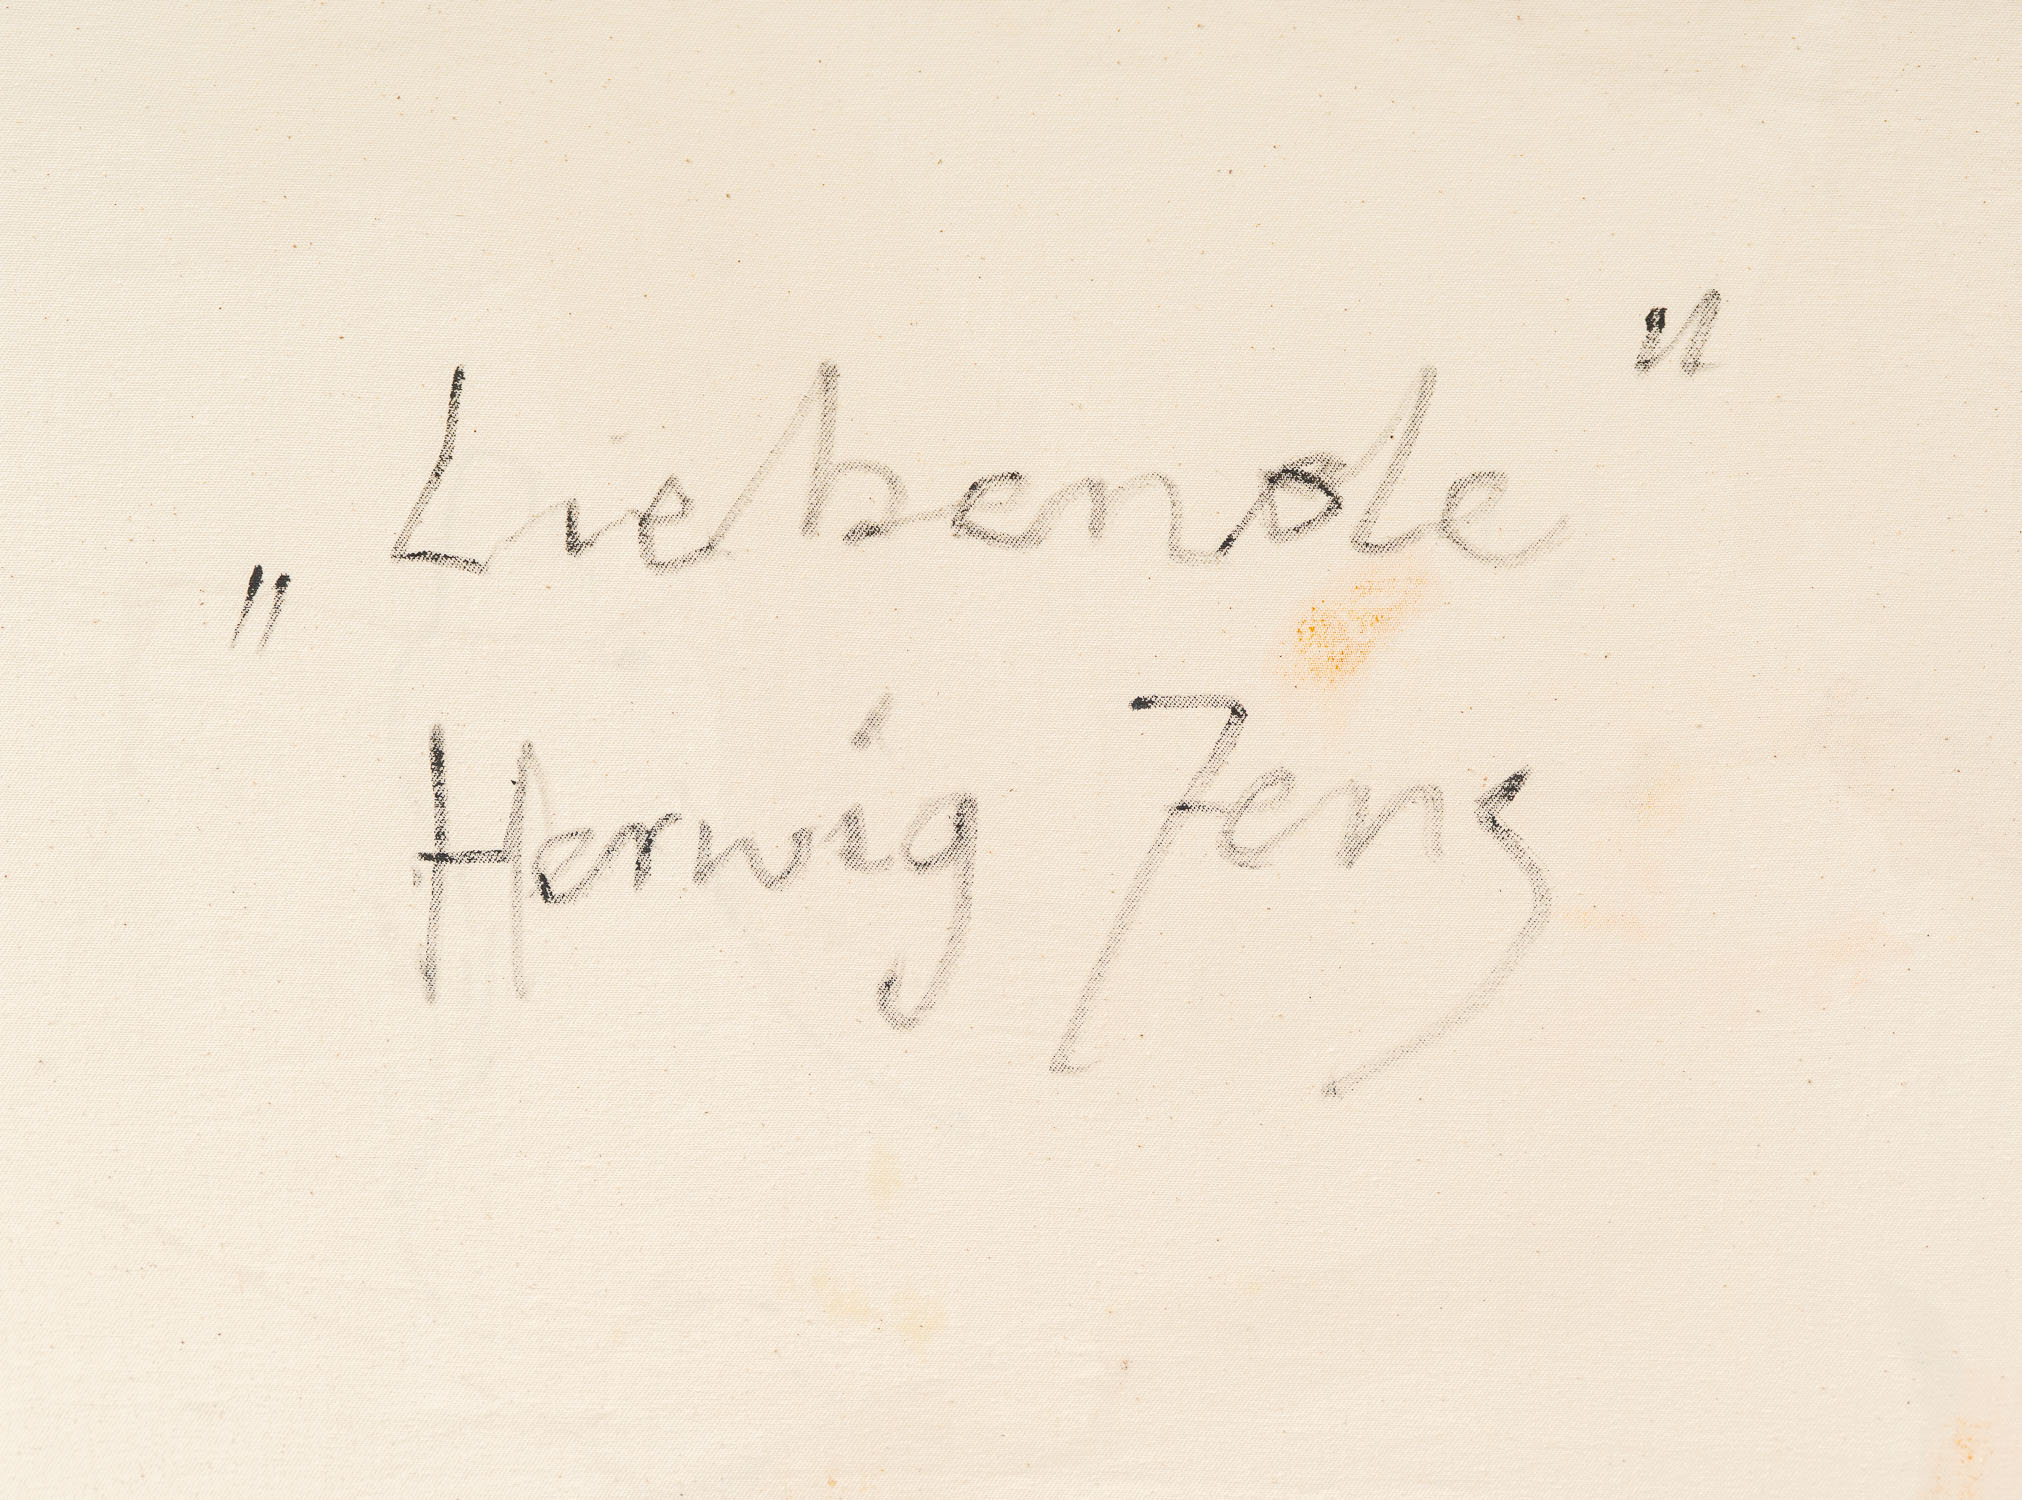 „Liebende“
Herwig Jens